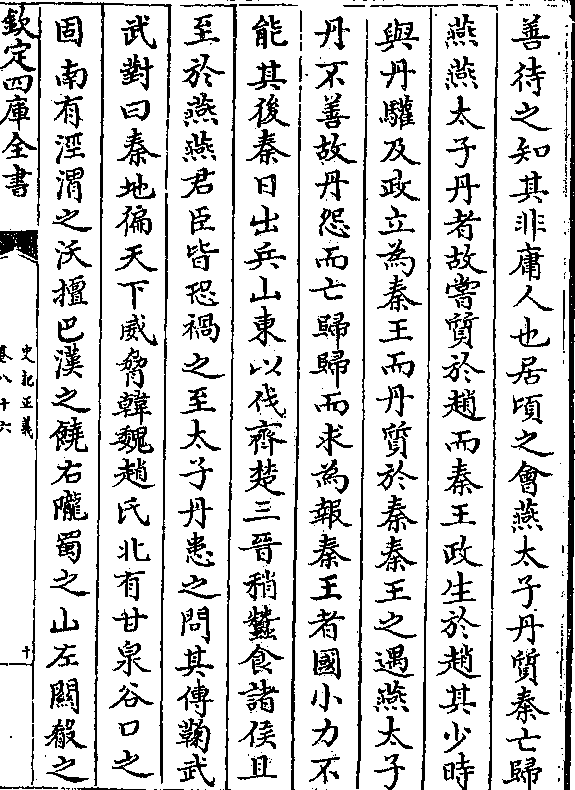 善待之知其非庸人也居頃之會燕太子丹質秦亡歸
燕燕太子丹者故嘗質於趙而秦王政生於趙其少時
與丹驩及政立為秦王而丹質於秦秦王之遇燕太子
丹不善故丹怨而亡歸歸而求為報秦王者國小力不
能其後秦日出兵山東以伐齊楚三晉稍蠶食諸侯且
至於燕燕君臣皆恐禍之至太子丹患之問其傅鞠武
武對曰秦地徧天下威脅韓魏趙氏北有甘泉谷口之
固南有涇渭之沃擅巴漢之饒右隴蜀之山左關殽之
欽定四庫全書
史記正義
卷八十六
十